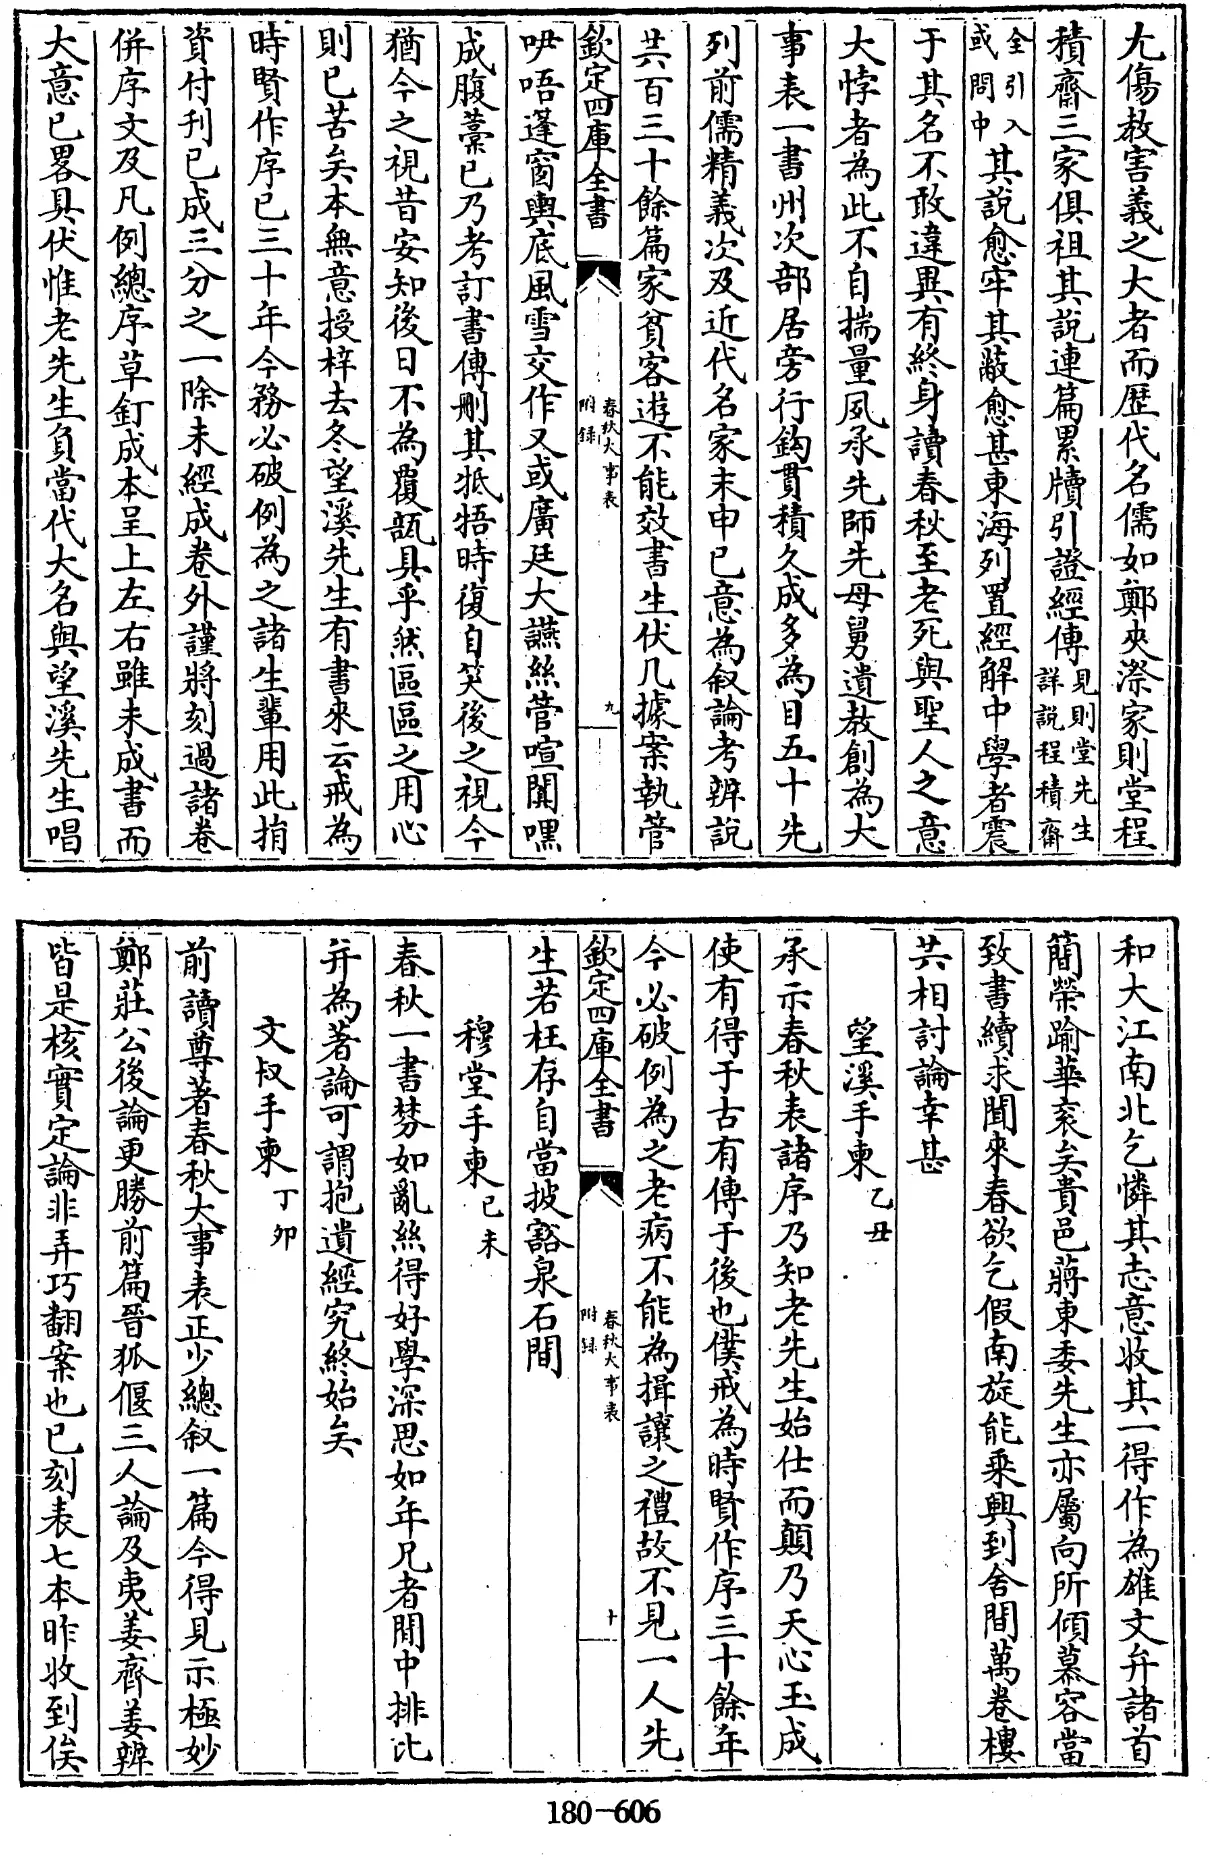 尤傷教害義之大者而歴代名儒如鄭夾漈家則堂程
積齋三家俱祖其説連篇累牘引證經傳見則堂先生詳説程積齋
全引入或問中其説愈牢其蔽愈甚東海列置經解中學者震
于其名不敢違異有終身讀春秋至老死與聖人之意
大悖者為此不自揣量夙承先師先母舅遺教創為大
事表一書州次部居旁行鈎貫積久成多為目五十先
列前儒精義次及近代名家末申己意為叙論考辨説
共百三十餘篇家貧客遊不能效書生伏几據案執管
欽定四庫全書
春秋大事表
附録
九
咿唔蓬窗輿底風雪交作又或廣廷大讌絲管喧闐嘿
成腹藁已乃考訂書傳刪其牴牾時復自笑後之視今
猶今之視昔安知後日不為覆瓿具乎然區區之用心
則已苦矣本無意授梓去冬望溪先生有書來云戒為
時賢作序已三十年今務必破例為之諸生輩用此捐
資付刊已成三分之一除未經成卷外謹將刻過諸卷
併序文及凡例總序草釘成本呈上左右雖未成書而
大意已畧具伏惟老先生負當代大名與望溪先生唱
和大江南北乞憐其志意收其一得作為雄文弁諸首
簡榮踰華衮矣貴邑蔣東委先生亦屬向所傾慕容當
致書續求聞來春欲乞假南旋能乘興到舍間萬卷樓
共相討論幸甚
望溪手柬乙丑
承示春秋表諸序乃知老先生始仕而顛乃天心玉成
使有得于古有傳于後也僕戒為時賢作序三十餘年
今必破例為之老病不能為揖讓之禮故不見一人先
欽定四庫全書
春秋大事表
附録
十
生若枉存自當披豁泉石間
穆堂手柬己未
春秋一書棼如亂絲得好學深思如年兄者閒中排比
并為著論可謂抱遺經究終始矣
文叔手柬丁卯
前讀尊著春秋大事表正少總叙一篇今得見示極妙
鄭莊公後論更勝前篇晉狐偃三人論及夷姜齊姜辨
皆是核實定論非弄巧翻案也已刻表七本昨收到俟
180-606